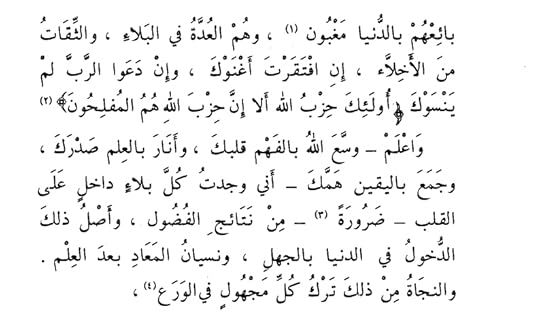 بائِعْهُمْ بالدُّنيا مَغْبُون (١) ، وهُمْ العُدَّةُ في البَلاءِ ، والثِّقَاتُ
منَ الأَخِلاَّء ، إنِ افْتَقَرْتَ أَغْنَوْكَ ، وإنْ دَعَوا الرَّبَّ لمْ
يَنْسَوْكَ ﴿أُولَئِكَ حِزْبُ الله ألا إنَّ حِزْبَ اللهِ هُمُ المُفلِحُونَ﴾ (٢)
وَاعْلَمْ – وسَّعَ اللهُ بالفَهْم قلبكَ ، وأَنَارَ بالعِلم صَدْرَكَ ،
وجَمَعَ باليقين هَمَّكَ – أني وجدتُ كُلَّ بلاءٍ داخلٍ عَلَى
القلب – ضَرُورَةً (٣) – مِنْ نَتَائجِ الفُضُول ، وأَصْلُ ذلكَ
الدُّخولُ في الدنيا بالجهلِ ، ونسيانُ المَعَادِ بعدَ العِلْم .
والنجَاةُ مِنْ ذلكَ تَرْكُ كُلِّ مَجْهُولٍ في الوَرَعِ (٤) ،